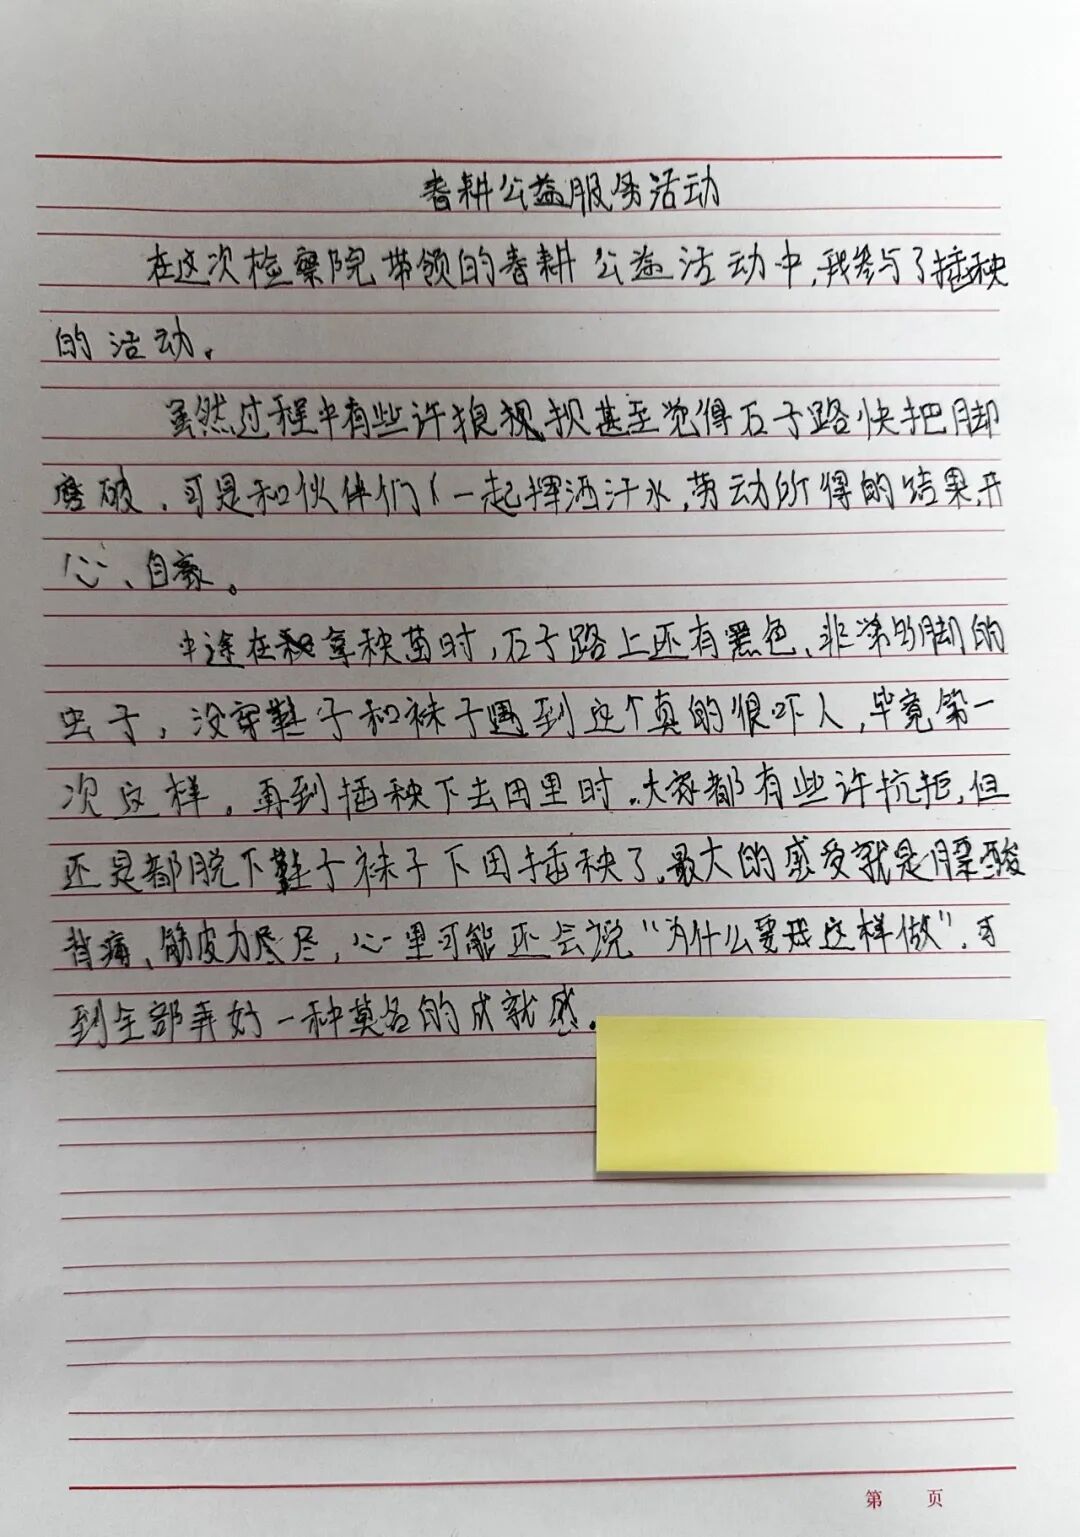 春耕公益服务活动
在这次检察院带领的春耕公益活动中,我参与了插秧
的活动。
虽然过程中有些许狼狈,甚至觉得石子路快把脚
磨破,可是和伙伴们一起挥洒汗水,劳动所得的结果,开
心、自豪。
中途在拿秧苗时,石子路上还有黑色、非常多脚的
虫子,没穿鞋子和袜子遇到这个真的很吓人,毕竟第一
次这样。再到插秧下去田里时.大家都有些许抗拒,但
还是都脱下鞋子袜子下田插秧了.最大的感受就是腰酸
背痛、筋皮力尽,心里可能还会说“为什么要我这样做”,可
到全部弄好一种莫名的成就感.
第 页